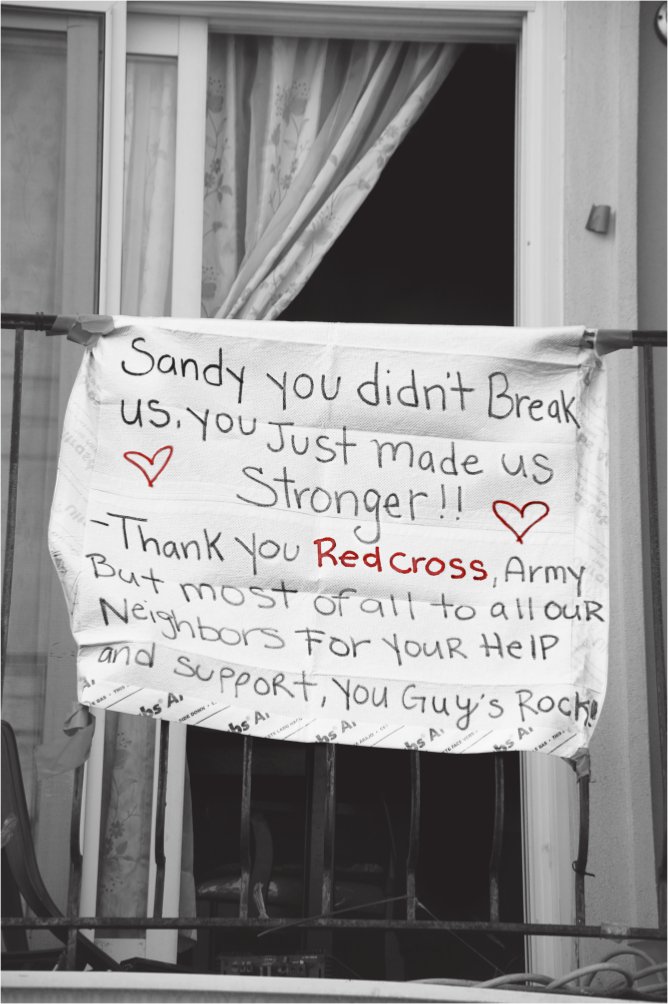 Sandy you didn't Break
us, you Just made us
Stronger!!
-Thank you Redcross, Army
But most of all to all ouR
Neighbors For YouR HelP
and suppoRt, You Guy's Rock!